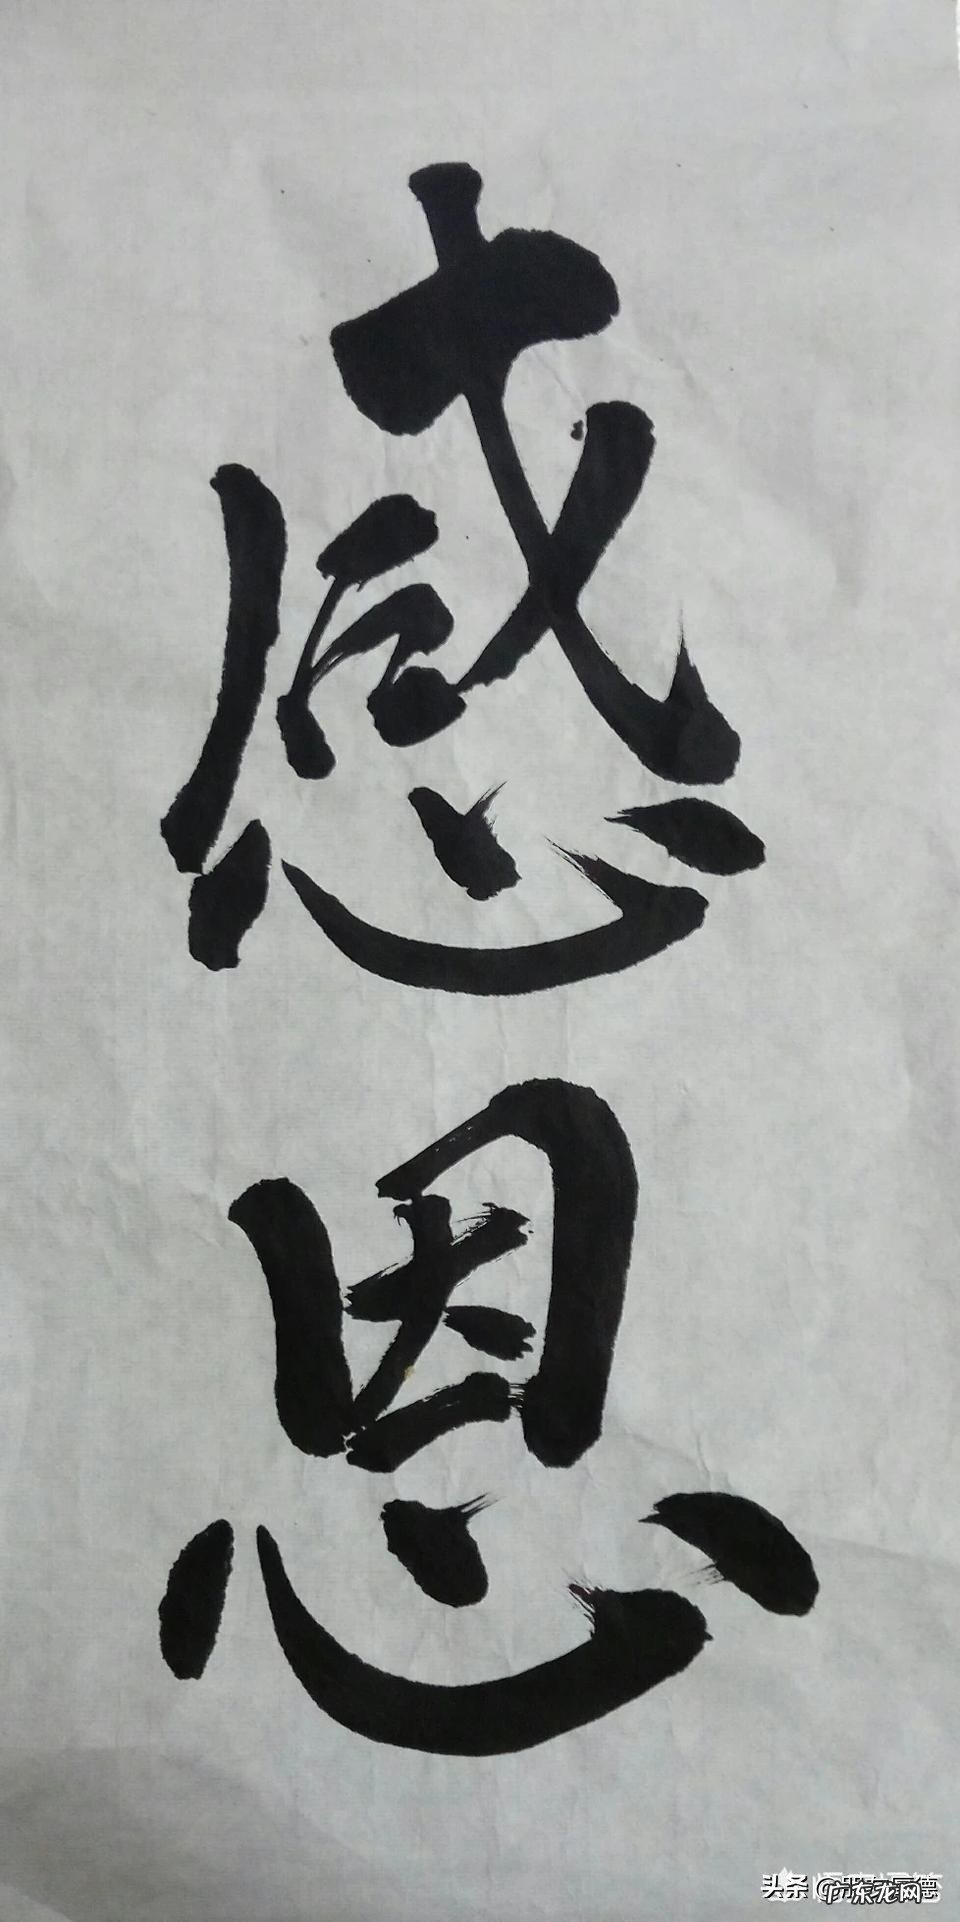 感恩
头条 @
广东龙网